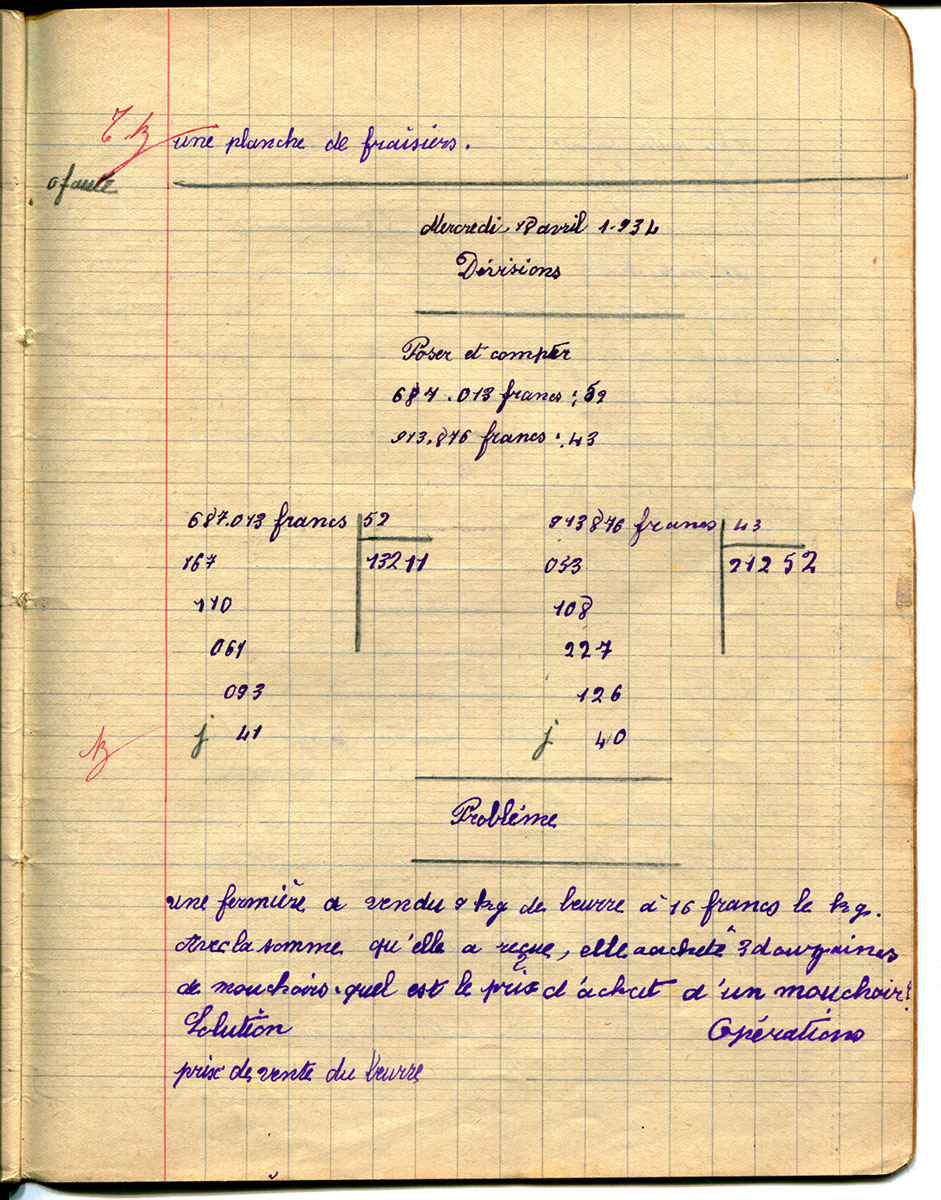 T.B une planche de fraisiers.
0 faute
Mercredi 18 avril 1.934
Divisions
Poser et compter
687.013 francs : 52
913.876 francs : 43
687.013 francs 52
167 13211
110
061
093
j 41
913876 francs 43
053 21252
108
227
126
j 40
B
Problème
une fermière a vendu 9 kg de beurre à 16 francs le kg.
Avec la somme qu'elle a reçue, elle a acheté 3 douzaines
de mouchoirs. quel est le prix d'achat d'un mouchoir?
Solution Opérations
prix de vente du beurre